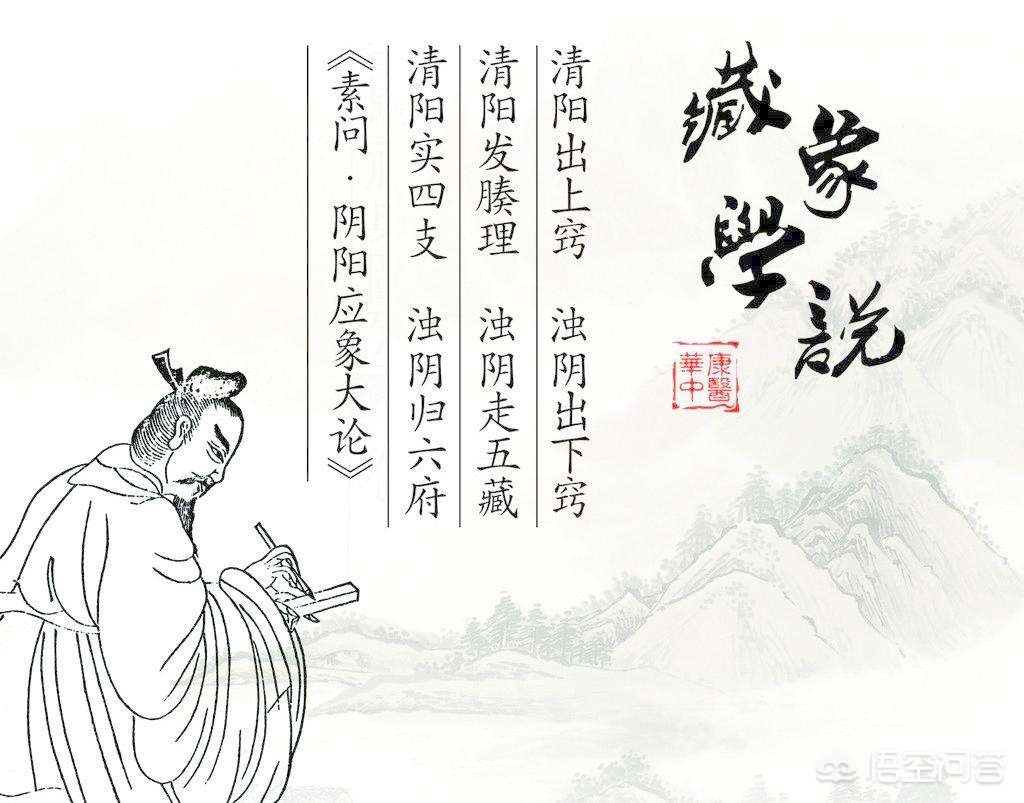 藏象學說
康醫
華中
清阳出上窍 浊阴出下窍
清阳发腠理 浊阴走五藏
清阳实四支 浊阴归六府
《素问·阴阳应象大论》
悟空问答